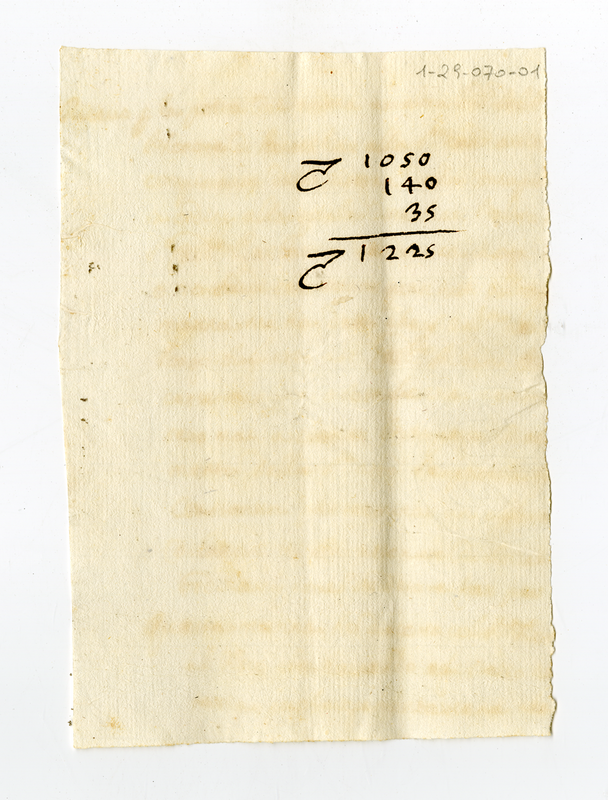 1-29-070-01
1050
140
35
1225